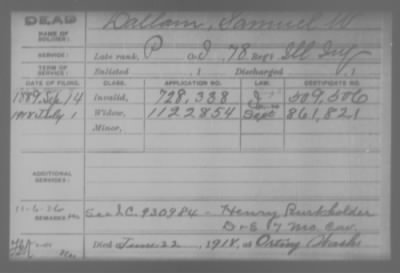 DEAD
NAME OF SOLDIER: Dallam, Samuel W
SERVICE: Late rank, P Co. I, 78 Reg't Ill Inf
TERM OF SERVICE: Enlisted , 1 Discharged , 1
DATE OF FILING. CLASS. APPLICATION NO. LAW. CERTIFICATE NO.
1889 Sep 14 Invalid, 728,338 509,506
1918 July 1 Widow, 1122854 Sept 861,821
Minor,
ADDITIONAL SERVICES:
11-6-26
REMARKS: See I.C. 930984 - Henry Burkholder
D & E 17 Mo. Cav.
Died June 22, 1918, at Orting Wash